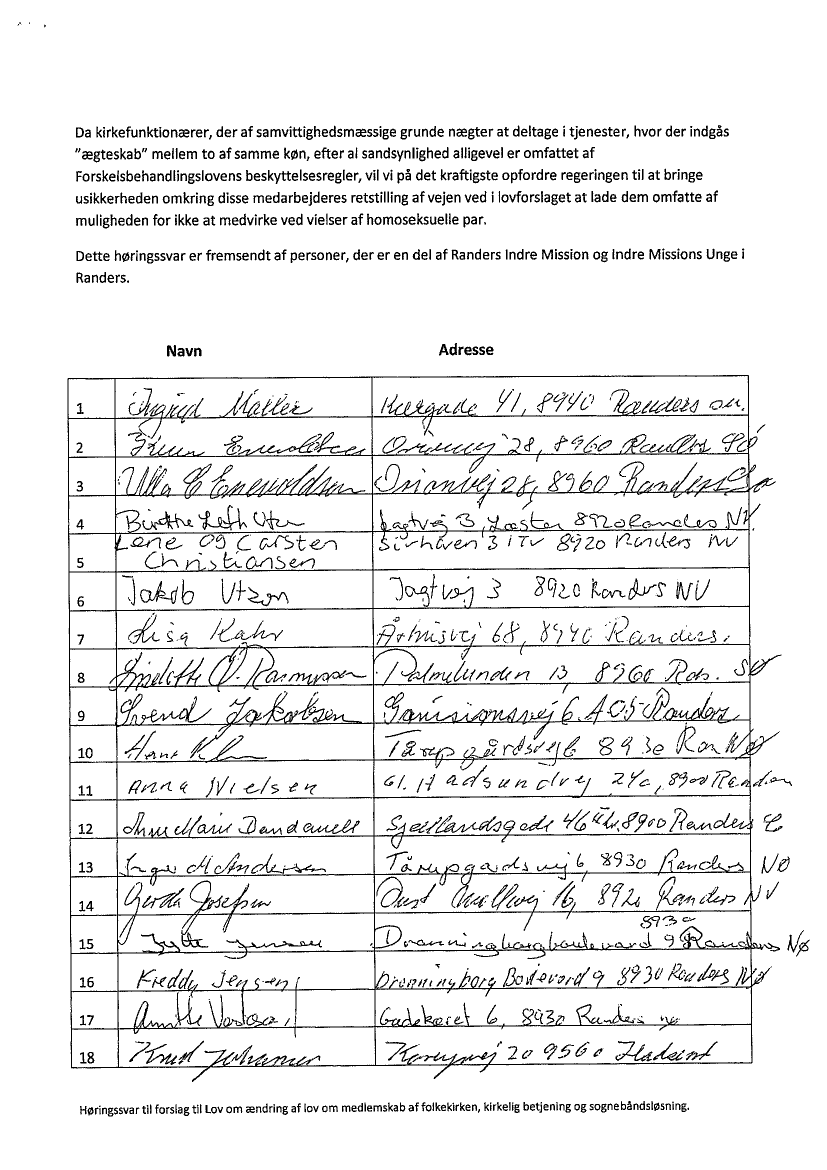 Da kirkefunktionærer, der af samvittighedsmæssige grunde nægter at deltage i tjenester, hvor der indgås
"ægteskab" mellem to af samme køn, efter al sandsynlighed alligevel er omfattet af
Forskelsbehandlingslovens beskyttelsesregler, vil vi på det kraftigste opfordre regeringen til at bringe
usikkerheden omkring disse medarbejderes retstilling af vejen ved i lovforslaget at lade dem omfatte af
muligheden for ikke at medvirke ved vielser af homoseksuelle par.
Dette høringssvar er fremsendt af personer, der er en del af Randers Indre Mission og Indre Missions Unge i
Randers.
Navn Adresse
1 Ingrid Møller 41, 8940 Randers
2 28, 8960 Randers Sø
3 Ulla E Enevoldsen Orionvej 28, 8960 Randers Sø
4 Birthe Leth Utzon Jagtvej 3, 8920 Randers NV
Lene og Carsten 3 1TV 8920 Randers NV
5 Christiansen
6 Jakob Utzon Jagtvej 3 8920 Randers NV
7 Lisa Kahr 68, 8940 Randers.
8 Liselotte Rasmussen Palmelunden 13, 8960 Rds. SØ
9 Svend Jakobsen Randers
10 Tårupgårdsvej 6 8930 Ran NØ
11 Anna Nielsen Gl. Hadsundvej 24c, 8900 Randers
12 Anne Marie Dandanell Sjællandsgade 46 8900 Randers C
13 Inger M Andersen Tårupgårdsvej 6, 8930 Randers NØ
14 Gerda Josefsen Oust Møllevej 16, 8920 Randers NV
8930
15 Jytte Jensen Dronningborgboulevard 9 Randers NØ
16 Freddy Jensen Dronningborg Bolevard 9 8930 Randers NØ
17 Gadekæret 6, 8930 Randers NØ
18 Knud Johansen 20 9560 Hadsund
Høringssvar til forslag til Lov om ændring af lov om medlemskab af folkekirken, kirkelig betjening og sognebåndsløsning.